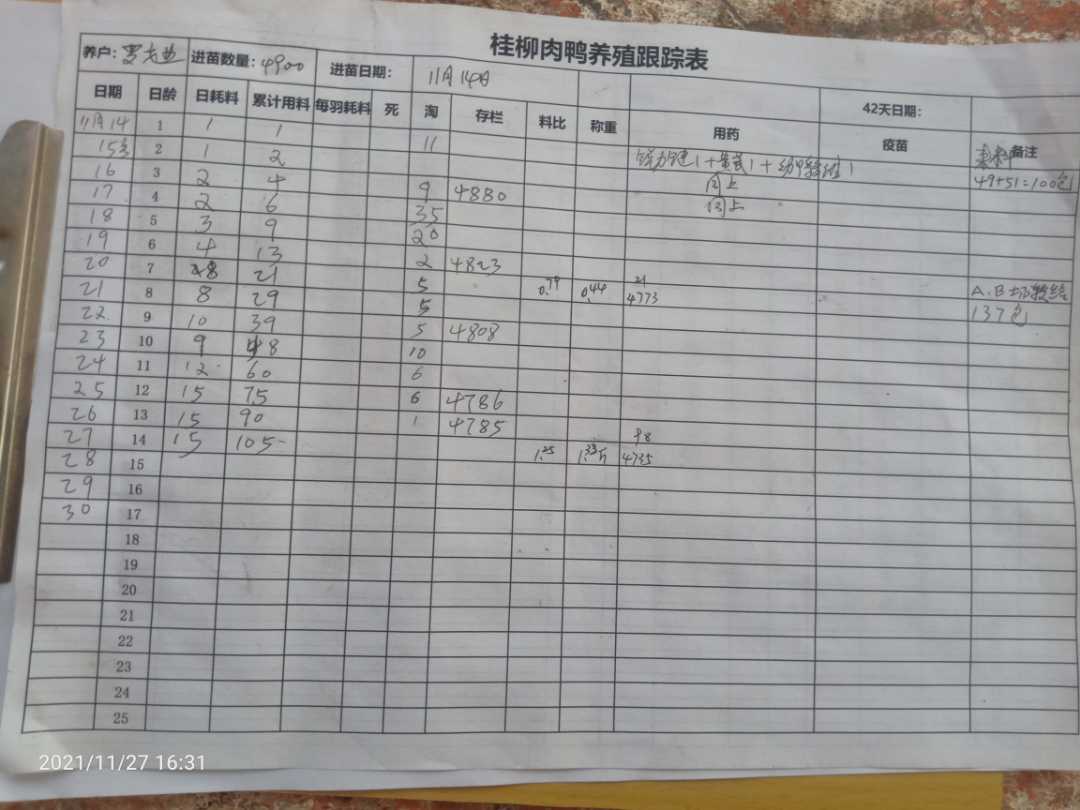 桂柳肉鸭养殖跟踪表
养户: 进苗数量: 4900 进苗日期: 11月14日 42天日期:
日期 日龄 日耗料 累计用料 每羽耗料 死 淘 存栏 料比 称重 用药 疫苗 备注
11月14 1 1 1 11
15 2 1 2
16 3 2 4 9 4880 同上 49+51=100包
17 4 2 6 35 同上
18 5 3 9 20
19 6 4 13 2 4823
20 7 8 21 5 0.79 0.44 21
21 8 8 29 5 4773 A.B
22 9 10 39 5 4808 137包
23 10 9 48 10
24 11 12 60 6
25 12 15 75 6 4786
26 13 15 90 1 4785
27 14 15 105 1.25 98
28 15 4735
29 16
30 17
18
19
20
21
22
23
24
25
2021/11/27 16:31